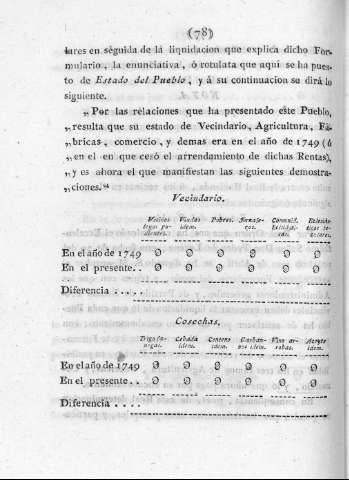 (78)
lares en séguida de la liquidacion que explica dicho For-
mulario, la enunciativa, ó rotulata que aqui se ha pues-
to de Estado del Pueblo, y á su continuacion se dirá lo
siguiente.
„Por las relaciones que ha presentado este Pueblo,
„resulta que su estado de Vecindario, Agricultura, Fá-
„bricas, comercio, y demas era en el año de 1749 (ó
„en el en que cesó el arrendamiento de dichas Rentas),
„y es ahora el que manifiestan las siguientes demostra-
„ciones.“
Vecindario.
Vecinos Viudas Pobres.
idem.
En el año de 1749 0 0 0 0 0 0
En el presente.. 0 0 0 0 0 0
Diferencia .....
Cosechas.
Trigo fa- Cebada Centeno Garban- Vino ar- Aceyte
negas. idem. idem. zos idem. robas. idem.
En el año de 1749 0 0 0 0 0 0
En el presente.. 0 0 0 0 0 0
Diferencia ....